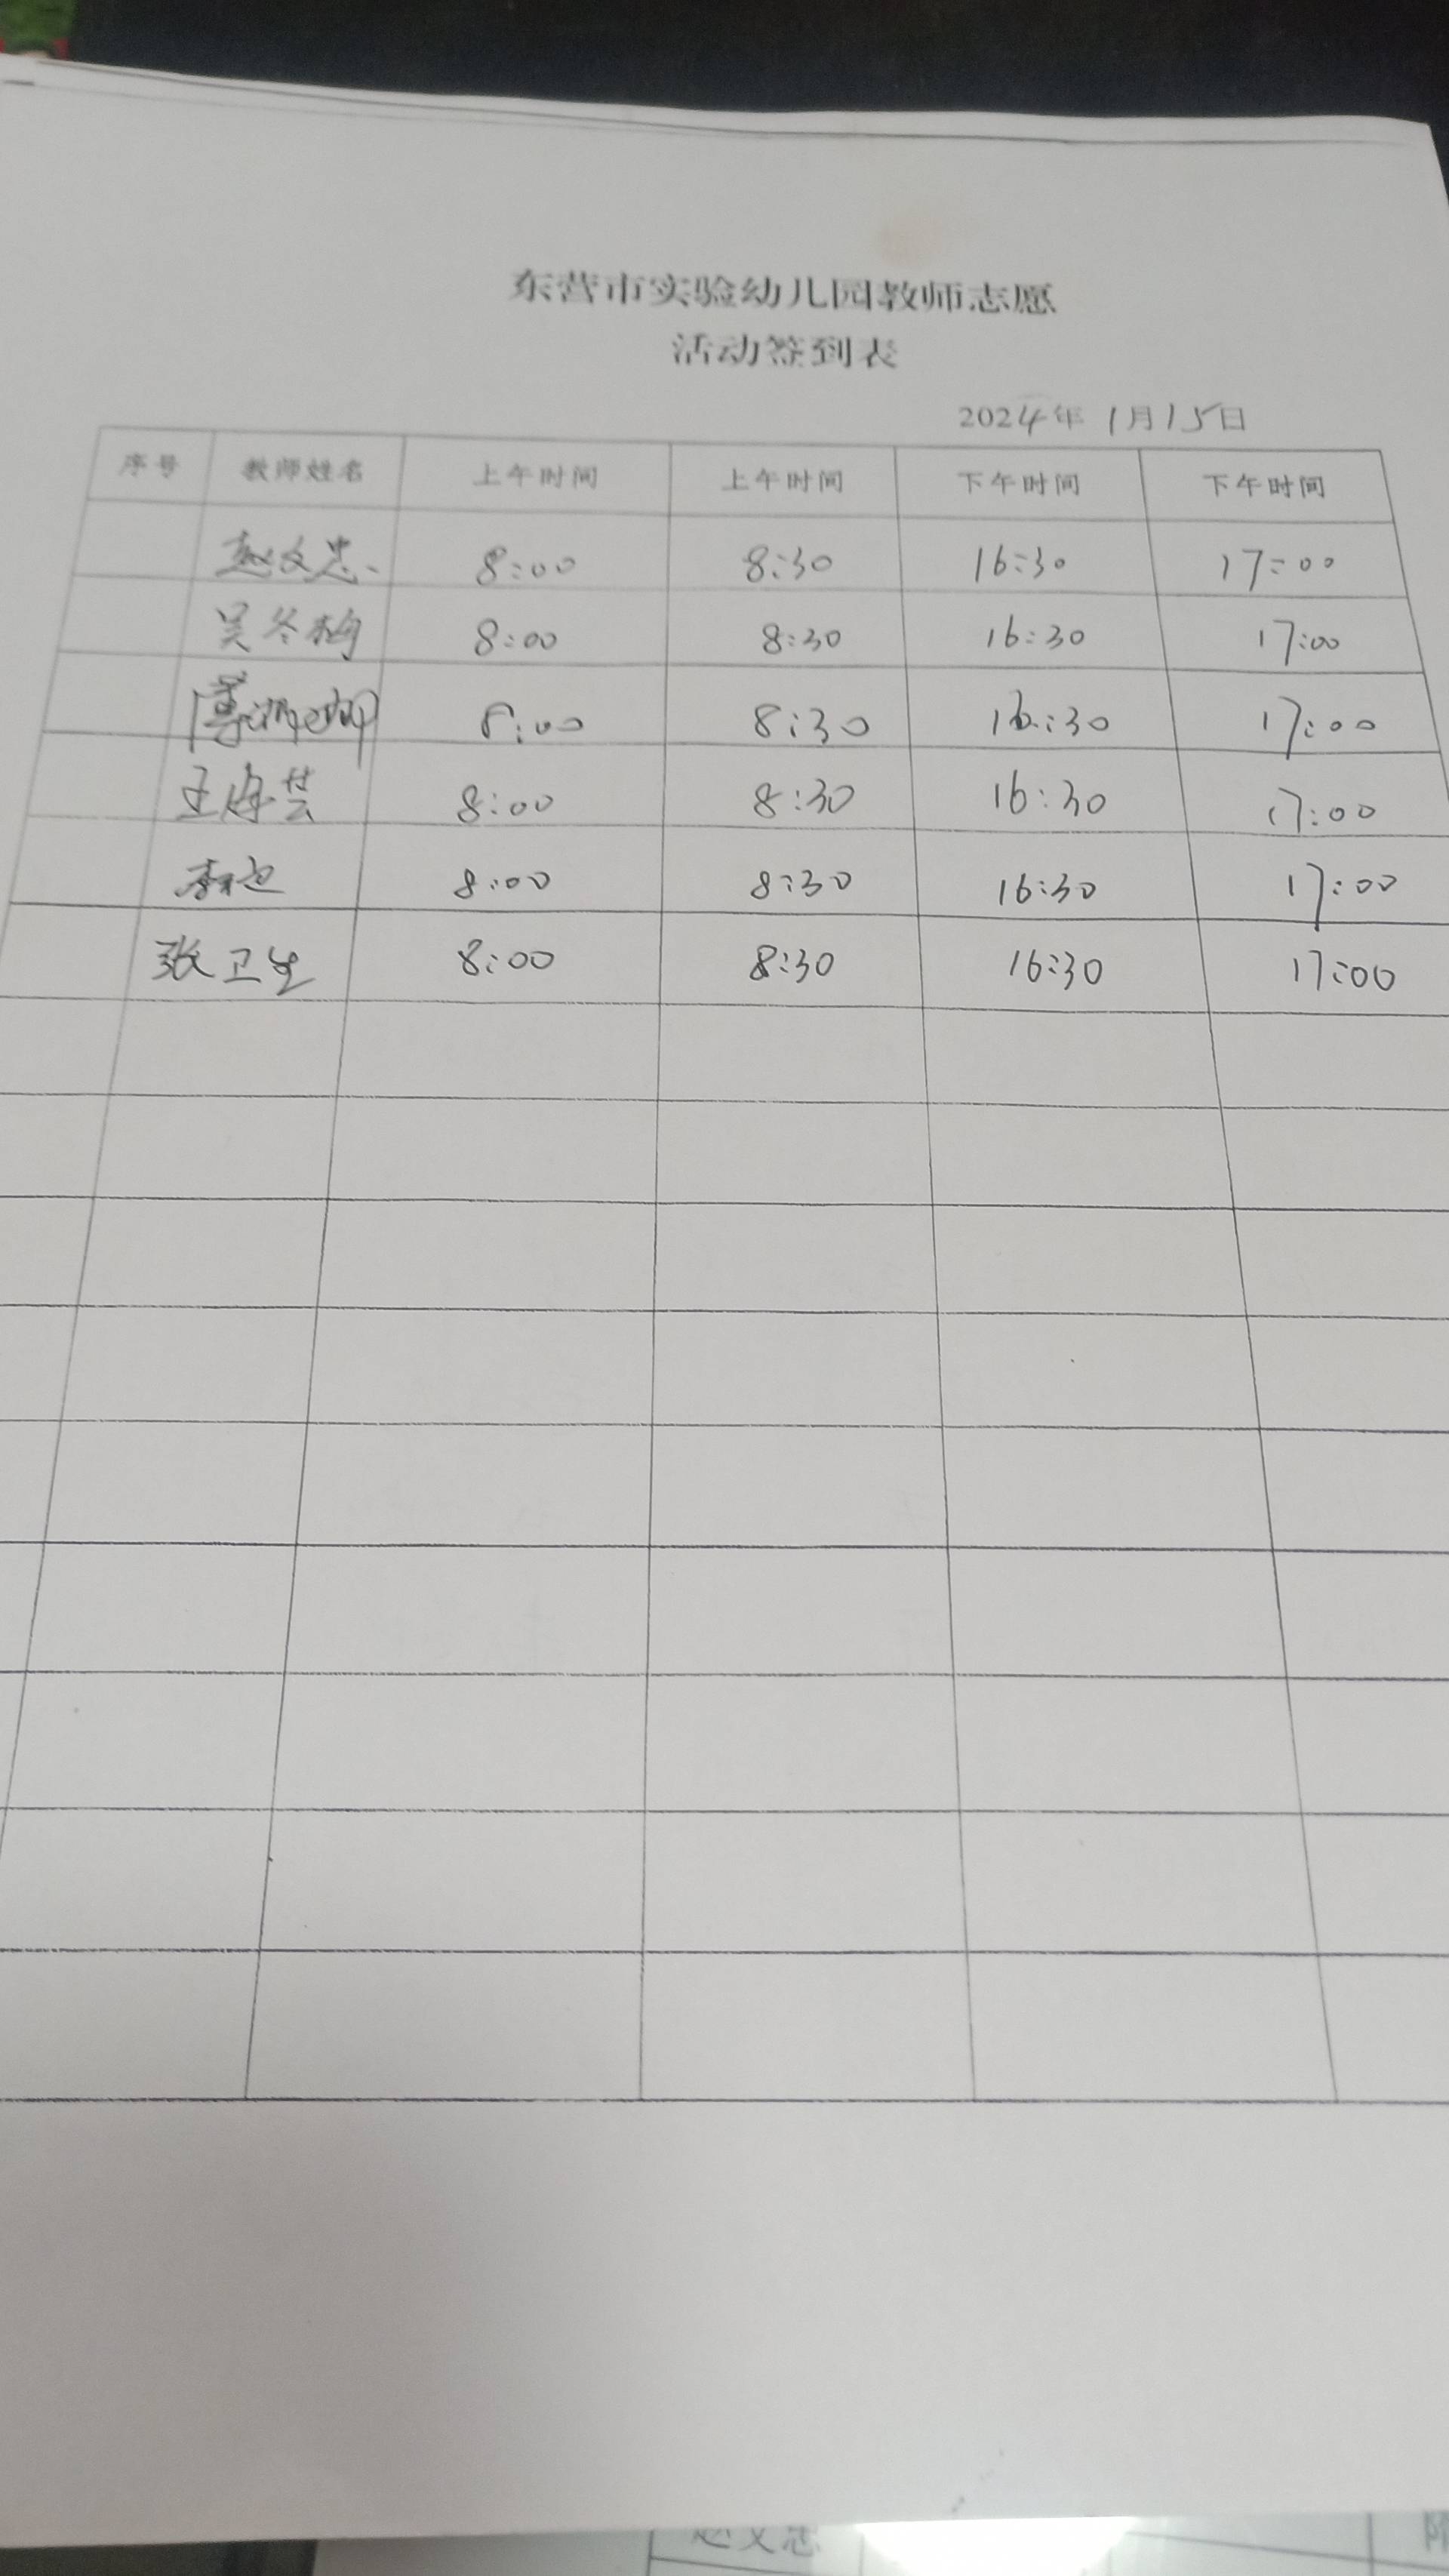 东营市实验幼儿园教师志愿
活动签到表
2024年 1月15日
序号 教师姓名 上午时间 上午时间 下午时间 下午时间
赵文忠 8:00 8:30 16:30 17:00
吴冬梅 8:00 8:30 16:30 17:00
8:00 8:30 16:30 17:00
王海芸 8:00 8:30 16:30 17:00
8:00 8:30 16:30 17:00
张卫生 8:00 8:30 16:30 17:00
赵文忠